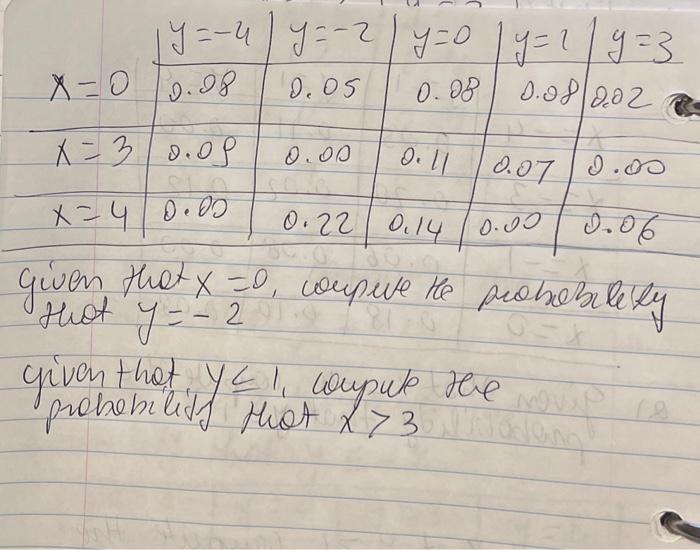 y=-4 y=-2 y=0 y=1 y=3
x=0 0.08 0.05 0.08 0.08 0.02
x=3 0.09 0.00 0.11 0.07 0.00
x=4 0.00 0.22 0.14 0.00 0.06
given that x=0, compute the probability
that y=-2
given that y≤1, compute the
probability that x>3